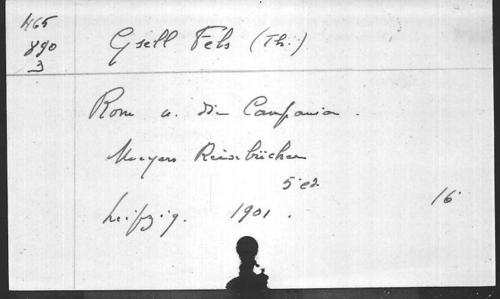 465
890
3
Gsell Fels (Th.)
Rom u. die Campania.
Meyers Reisebücher
5 ed.
Leipzig. 1901.
16